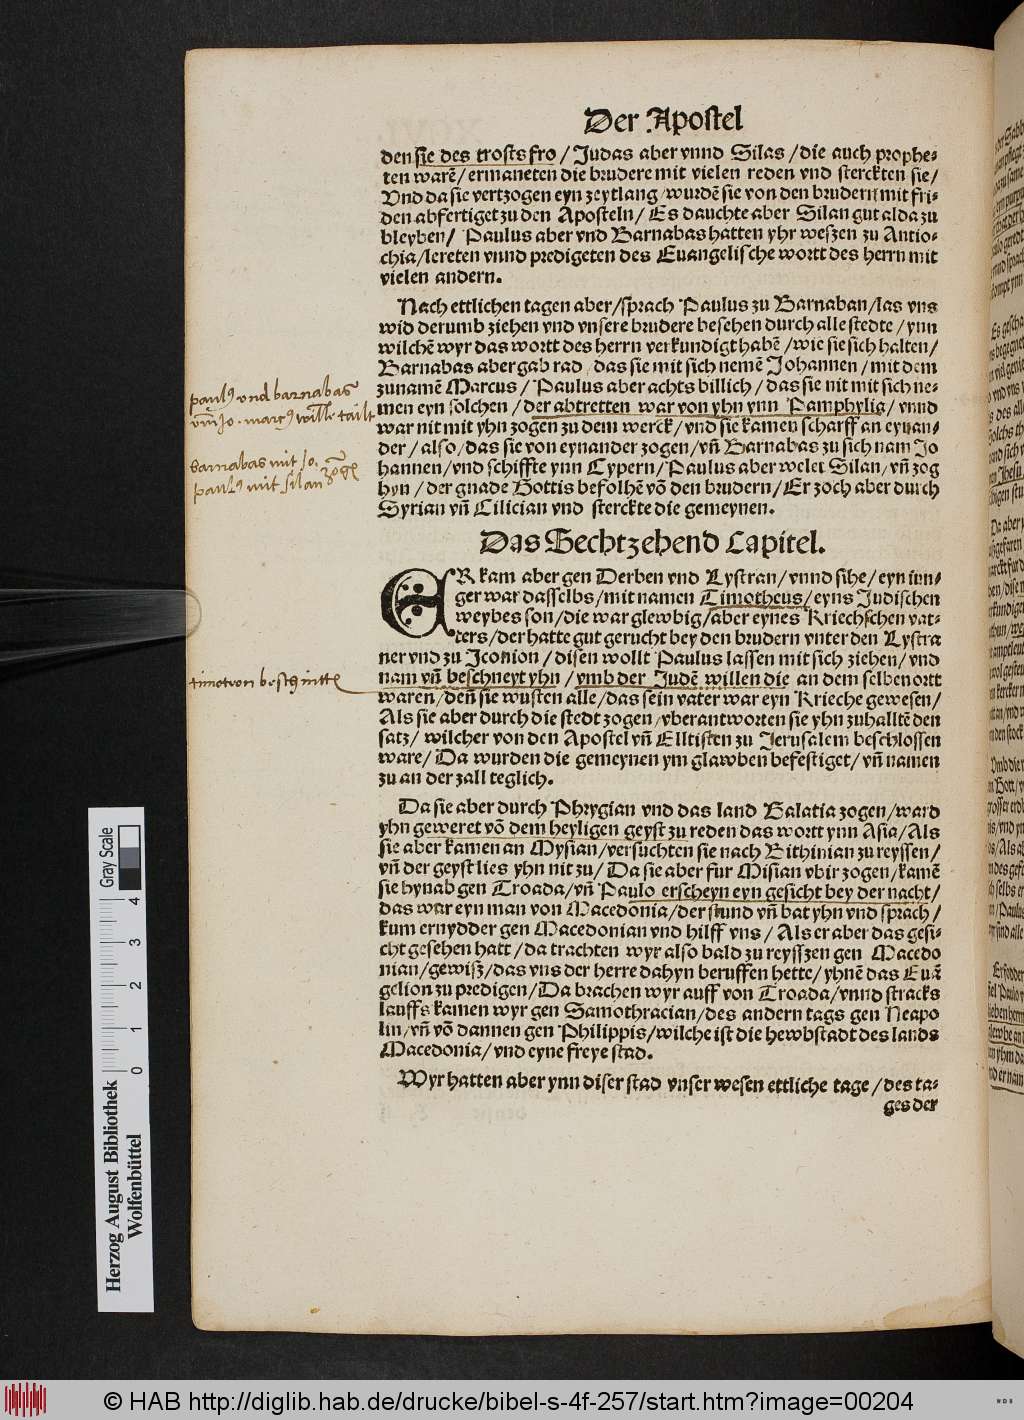 Der Apostel
den sie des trosts fro / Judas aber vnnd Silas / die auch prophe⸗
ten warē / ermaneten die brudere mit vielen reden vnd sterckten sie /
Vnd da sie vertzogen eyn zeytlang / wurdē sie von den brudern mit fri⸗
den abfertiget zu den Aposteln / Es dauchte aber Silan gut alda zu
bleyben / Paulus aber vnd Barnabas hatten yhr weszen zu Antio⸗
chia / lereten vnnd predigeten des Euangelische wortt des herrn mit
vielen andern.
Nach ettlichen tagen aber / sprach Paulus zu Barnaban / las vns
wid derumb ziehen vnd vnsere brudere besehen durch alle stedte / ynn
wilchē wyr das wortt des herrn verkundigt habē / wie sie sich halten /
Barnabas aber gab rad / das sie mit sich nemē Johannen / mit dem
zunamē Marcus / Paulus aber achts billich / das sie nit mit sich ne⸗
men eyn solchen / der abtretten war von yhn ynn Pamphylia / vnnd
war nit mit yhn zogen zu dem werck / vnd sie kamen scharff an eynan⸗
der / also / das sie von eynander zogen / vñ Barnabas zu sich nam Jo
hannen / vnd schiffte ynn Cypern / Paulus aber welet Silan / vñ zog
hyn / der gnade Gottis befolhē vō den brudern / Er zoch aber durch
Syrian vñ Cilician vnd sterckte die gemeynen.
paulꝰ vnd barnabas
barnabas mit Jo.
paulꝰ mit silan
Das Sechtzehend Capitel.
ER kam aber gen Derben vnd Lystran / vnnd sihe / eyn iun⸗
ger war dasselbs / mit namen Timotheus / eyns Judischen
weybes son / die war glewbig / aber eynes Kriechschen vat⸗
ters / der hatte gut gerucht bey den brudern vnter den Lystra
ner vnd zu Iconion / disen wollt Paulus lassen mit sich ziehen / vnd
nam vñ beschneyt yhn / vmb der Judē willen die an dem selben ortt
waren / deñ sie wusten alle / das sein vater war eyn Krieche gewesen /
Als sie aber durch die stedt zogen / vberantworten sie yhn zuhalltē den
satz / wilcher von den Apostel vñ Elltisten zu Jerusalem beschlossen
ware / Da wurden die gemeynen ym glawben befestiget / vñ namen
zu an der zall teglich.
Da sie aber durch Phrygian vnd das land Galatia zogen / ward
yhn geweret vō dem heyligen geyst zu reden das wortt ynn Asia / Als
sie aber kamen an Mysian / versuchten sie nach Bithinian zu reyssen /
vñ der geyst lies yhn nit zu / Da sie aber fur Misian vbir zogen / kamē
sie hynab gen Troada / vñ Paulo erscheyn eyn gesicht bey der nacht /
das war eyn man von Macedonia / der stund vñ bat yhn vnd sprach /
kum ernydder gen Macedonian vnd hilff vns / Als er aber das gesi⸗
cht gesehen hatt / da trachten wyr also bald zu reysszen gen Macedo
nian / gewisz / das vns der herre dahyn beruffen hette / yhnē das Euā
gelion zu predigen / Da brachen wyr auff von Troada / vnnd stracks
lauffs kamen wyr gen Samothracian / des andern tags gen Neapo
lin / vñ vō dannen gen Philippis / wilche ist die hewbstadt des lands
Macedonia / vnd eyne freye stad.
Wyr hatten aber ynn diser stad vnser wesen ettliche tage / des ta⸗
ges der
Gray Scale
0 1 2 3 4
Herzog August Bibliothek
Wolfenbüttel
© HAB http://diglib.hab.de/drucke/bibel-s-4f-257/start.htm?image=00204